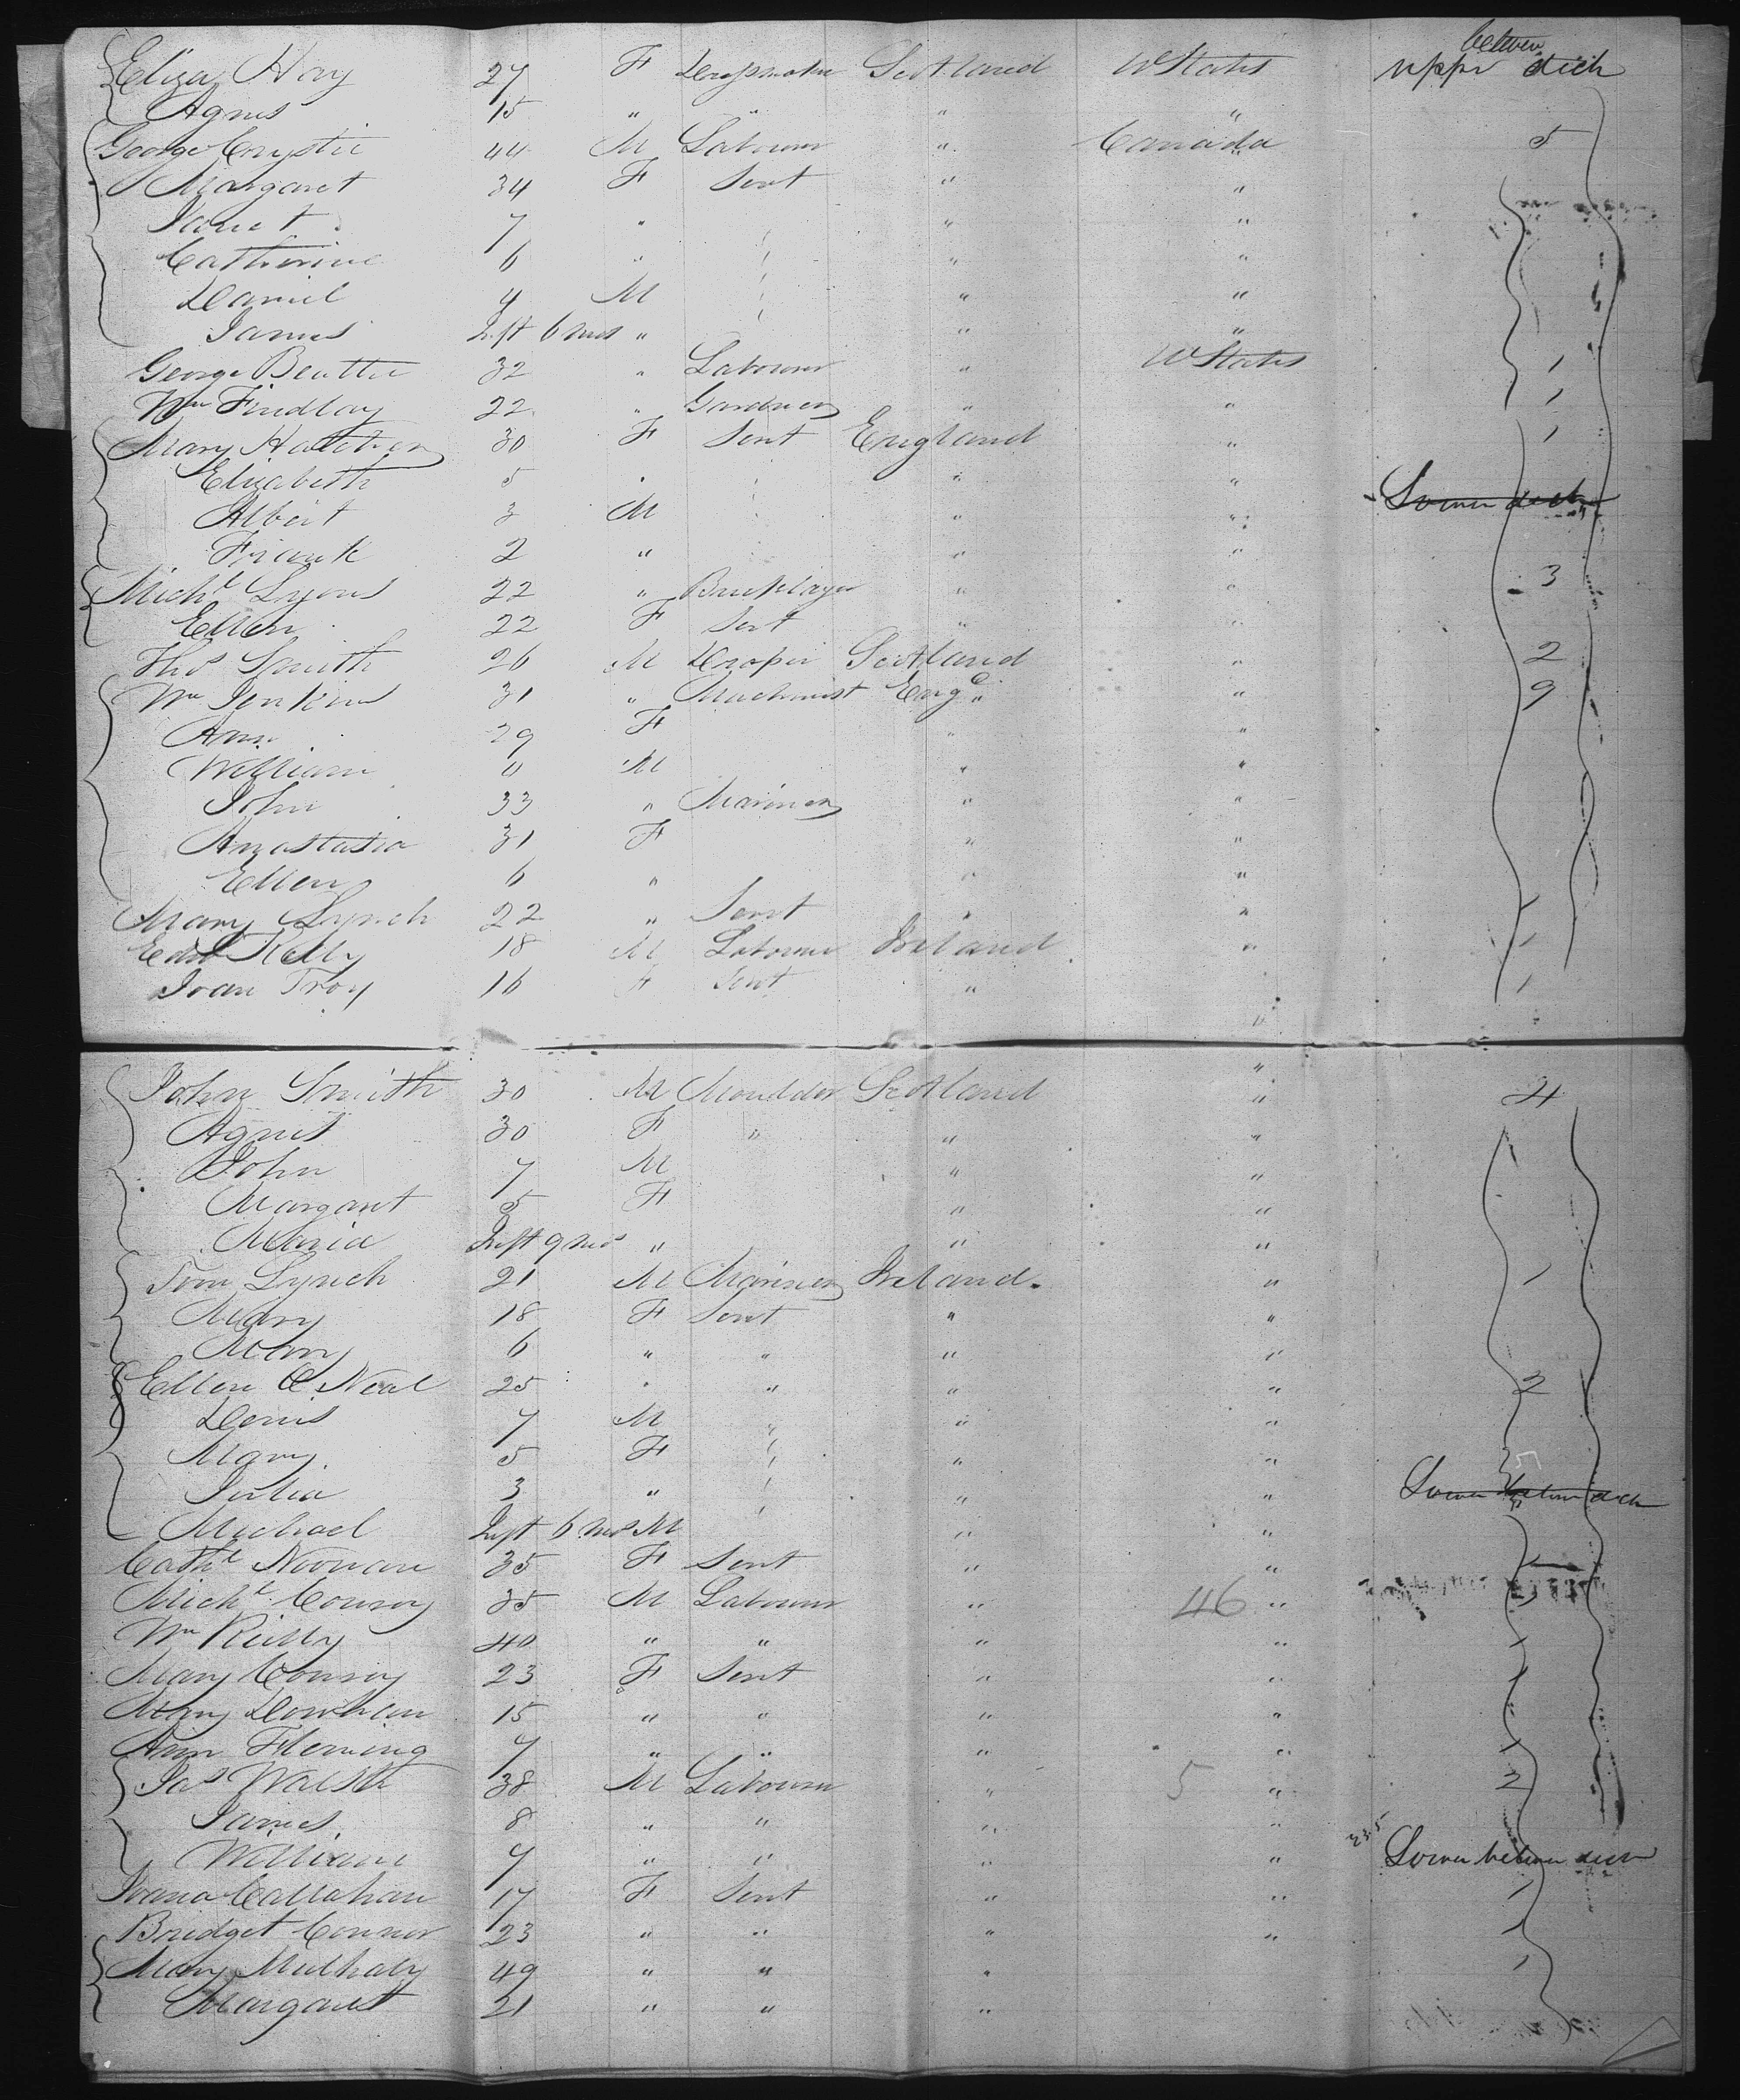 Eliza Hay 27 F Dressmaker Scotland U States upper between deck
Agnes 15 " " " "
George Crystie 44 M Labourer " Canada 5
Margaret 34 F Servt " "
Janet 7 " " "
Catherine 6 " " "
Daniel 4 M " "
James Inft 6 mos " " "
George Beattie 32 " Labourer " U States 1
Wm Findlay 22 " Gardner " " 1
Mary Hatcher 30 F Servt England " 1
Elizabeth 5 " " "
Albert 3 M " " Lower deck
Frank 2 " " "
Michl Lyons 22 " Bricklayer " " 3
Ellen 22 F Servt " "
Thos Smith 26 M Draper Scotland " 2
Wm Jenkins 31 " Machinist Engd " 9
Ann 29 F " "
William 4 M " "
John 33 " Mariner " "
Anastasia 31 F " "
Ellen 6 " " "
Mary Lynch 22 " Servt " " 1
Edwd Kelly 18 M Labourer Ireland " 1
Joan Troy 16 F Servt " " 1
John Smith 30 M Moulder Scotland " 4
Agnes 30 F " " "
John 7 M " "
Margaret 5 F " "
Maria Inft 9 mos " " "
Tom Lynch 21 M Mariner Ireland " 1
Mary 18 F Servt " "
Mary 6 " " " "
Ellen O Neal 25 " " " " 2
Denis 7 M " " "
Mary 5 F " " 5
Julia 3 " " " Lower between deck
Michael Inft 6 mos M " "
Cathe Noonan 35 F Servt " "
Michl Conroy 35 M Labourer " 46 "
Wm Reilly 40 " " " " 1
Mary Conroy 23 F Servt " " 1
Mary 15 " " " "
Ann Fleming 7 " " " " 1
Jas Walsh 38 M Labourer " 5 " 2
James 8 " " " "
William 7 " " " " Lower between deck
Joana Callahan 17 F Servt " " 1
Bridget Connor 23 " " " " 1
Mary Mulhaly 49 " " " 1
Margaret 21 " " "